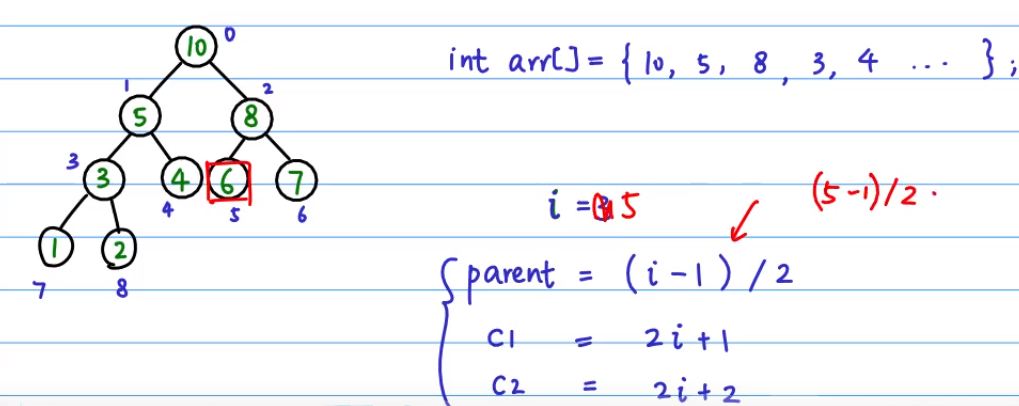 10 0
int arr[] = { 10, 5, 8, 3, 4 ... };
1 2
5 8
3
3 4 6 7
4 5 6
i = 5
(5-1)/2.
1 2
7 8
parent = (i-1)/2
C1 = 2i+1
C2 = 2i+2